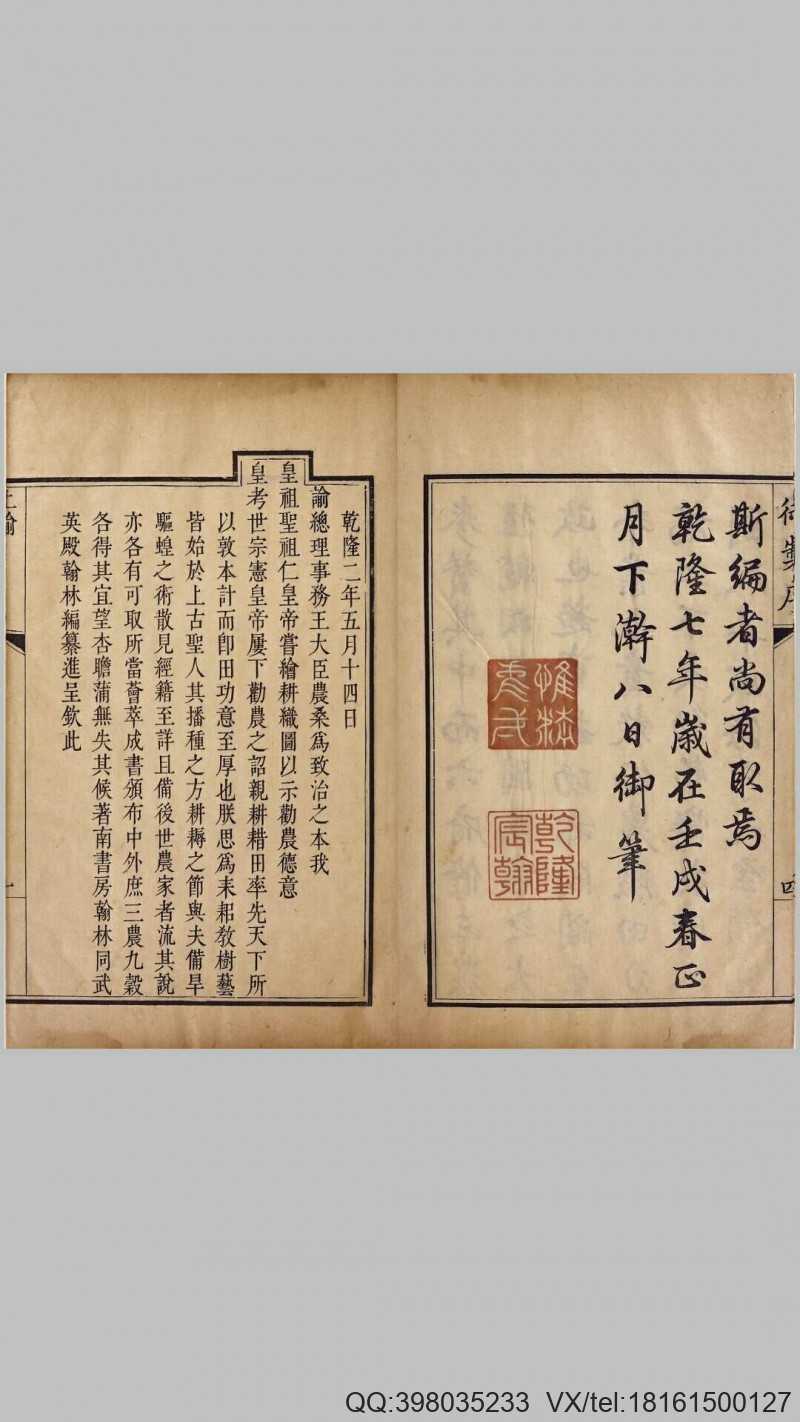 御製序
斯編者尚有取焉
乾隆七年歲在壬戌春正
月下澣八日御筆
惟精惟一
乾隆宸翰
四
乾隆二年五月十四日
諭總理事務王大臣農桑爲致治之本我
皇祖聖祖仁皇帝嘗繪耕織圖以示勸農德意
皇考世宗憲皇帝屢下勸農之詔親耕耤田率先天下所
以敦本計而卽田功意至厚也朕思爲耒耜敎樹藝
皆始於上古聖人其播種之方耕耨之節與夫備旱
驅蝗之術散見經籍至詳且備後世農家者流其說
亦各有可取所當薈萃成書頒布中外庶三農九穀
各得其宜望杏瞻蒲無失其候著南書房翰林同武
英殿翰林編纂進呈欽此
上諭
一
QQ:398035233 VX/tel:18161500127